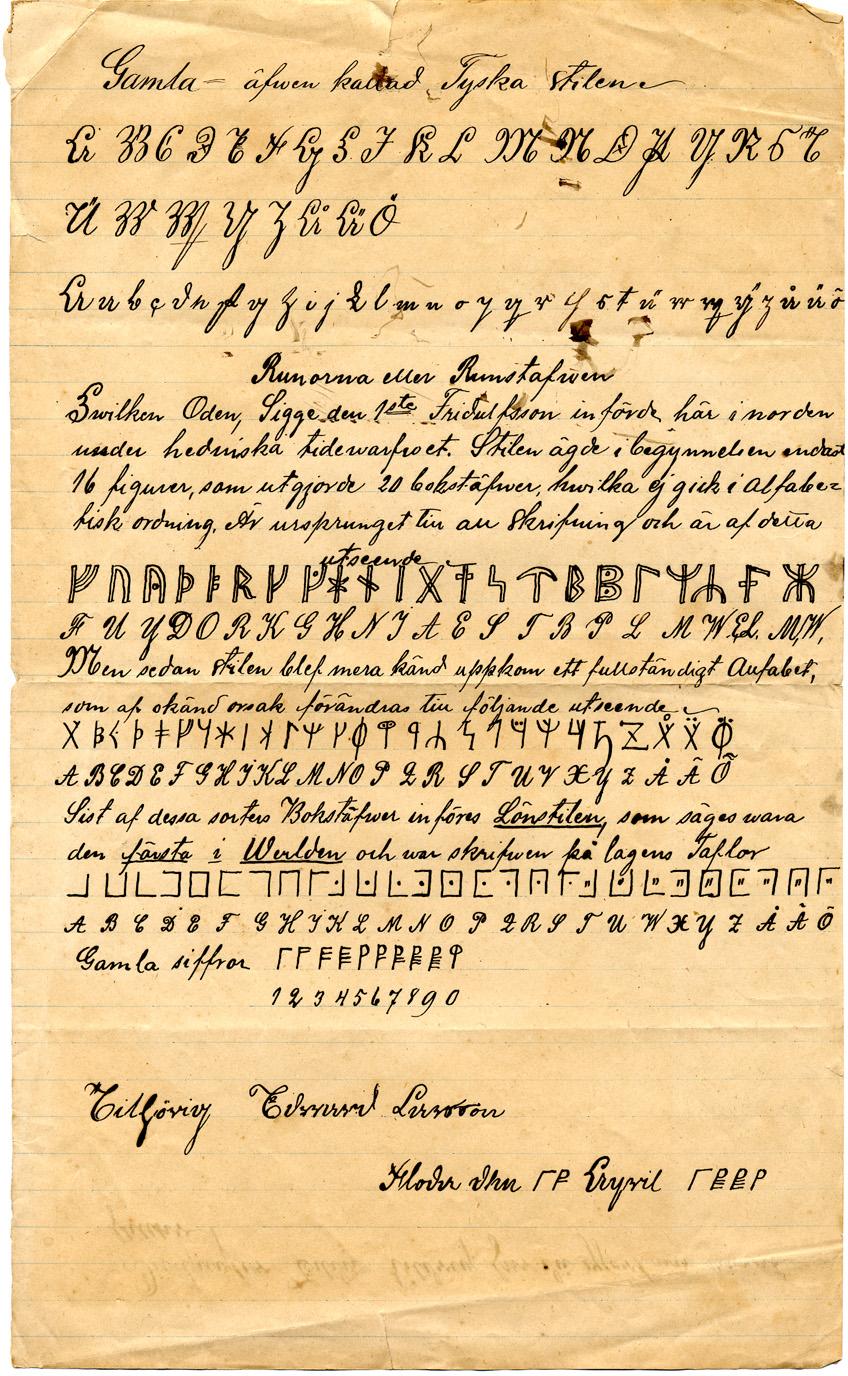 Gamla – äfwen kallad Tyska stilen
A B C D E F G H I K L M N O P Q R S T
U V W X Y Z Å Ä Ö
A a b c d e f g h i j k l m n o p q r s t u v w x y z å ä ö
Runorna eller Runstafwen
Hwilken Oden, Sigge den 1ste Fridulfsson införde här i norden
under hedniska tidewarfwet. Stilen ägde i begynnelsen endast
16 figurer, som utgjorde 20 bokstäfwer, hwilka ej gick i alfabe=
tisk ordning. Är ursprunget till all skrifning och är af detta
utseende
F U Y D O R K G H N I A E S T B P L M W EL. M, W,
Men sedan stilen blef mera känd uppkom ett fullständigt Alfabet,
som af okänd orsak förändras till följande utseende
A B C D E F G H I K L M N O P Q R S T U V X Y Z Å Ä Ö
Sist af dessa sorters Bokstäfwer införes Lönstilen, som säges wara
den första i Werlden och war skrifwen på lagens Taflor
A B C D E F G H I K L M N O P Q R S T U W X Y Z Å Ä Ö
Gamla siffror
1 2 3 4 5 6 7 8 9 0
Tillhörig Edward Larsson
Floda den ᚠ April